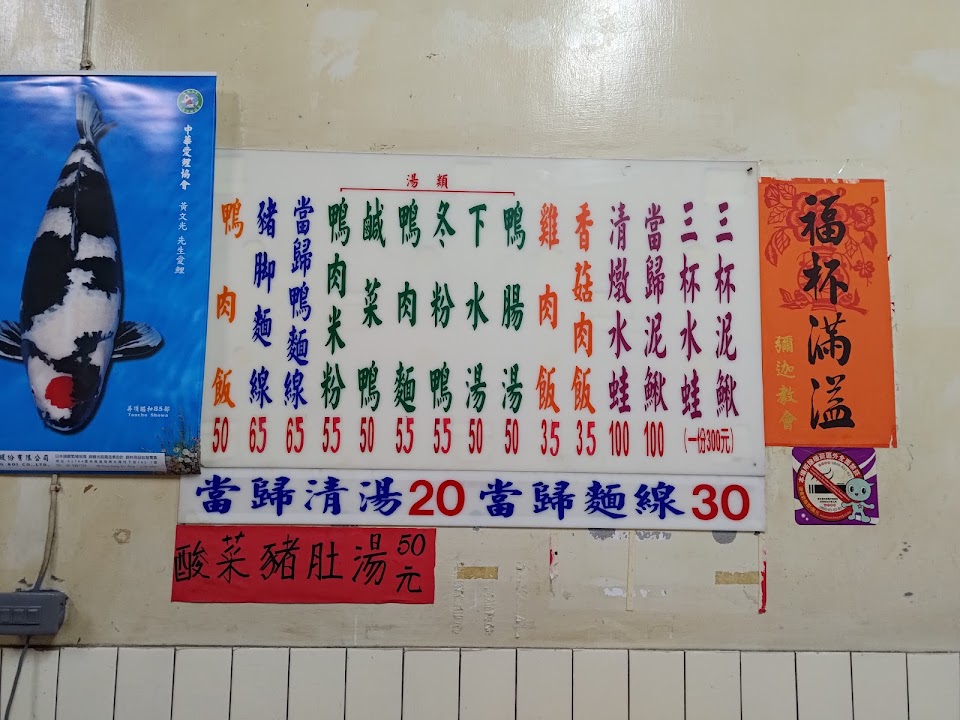 中華愛鯉協會 黃文光 先生愛鯉
昇頂昭和85部
Tancho Showa
湯類
鴨肉飯 50
豬腳麵線 65
當歸鴨麵線 65
鴨肉米粉 55
鹹菜鴨 50
鴨肉麵 55
冬粉鴨 55
下水湯 50
鴨腸湯 50
雞肉飯 35
香菇肉飯 35
清燉水蛙 100
當歸泥鰍 100
三杯水蛙
三杯泥鰍
(一份300元)
當歸清湯20 當歸麵線30
酸菜豬肚湯50元
福杯滿溢
彌迦教會